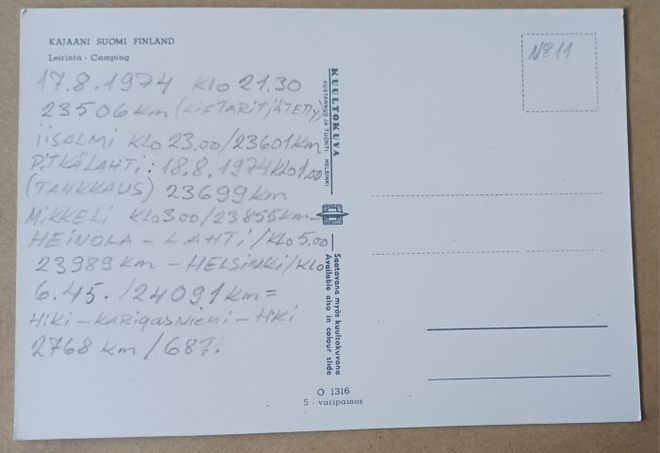 KAJAANI SUOMI FINLAND
Leirinta - Camping
17.8.1974 KLO 21.30
23506 KM (LIFTARIT JÄTETTY)
IISALMI KLO 23.00/23601 KM
PITKÄLAHTI: 18.8.1974 KLO 1.00
(TANKKAUS) 23699 KM
MIKKELI KLO 3.00/23855 KM -
HEINOLA - LAHTI/KLO 5.00
23989 KM - HELSINKI/KLO
6.45./24091 KM =
HKI - KARIGASNIEMI - HKI
2768 KM/68 T.
KUULTOKUVA
KUSTANNUS JA TUONTI HELSINKI
Saatavana myös kuultokuvana
Available also in colour slide
O 1316
5 - väripainos
No 11